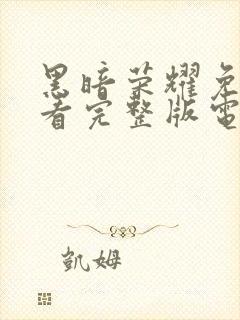 黑暗荣耀免
看完整版電
凱姆